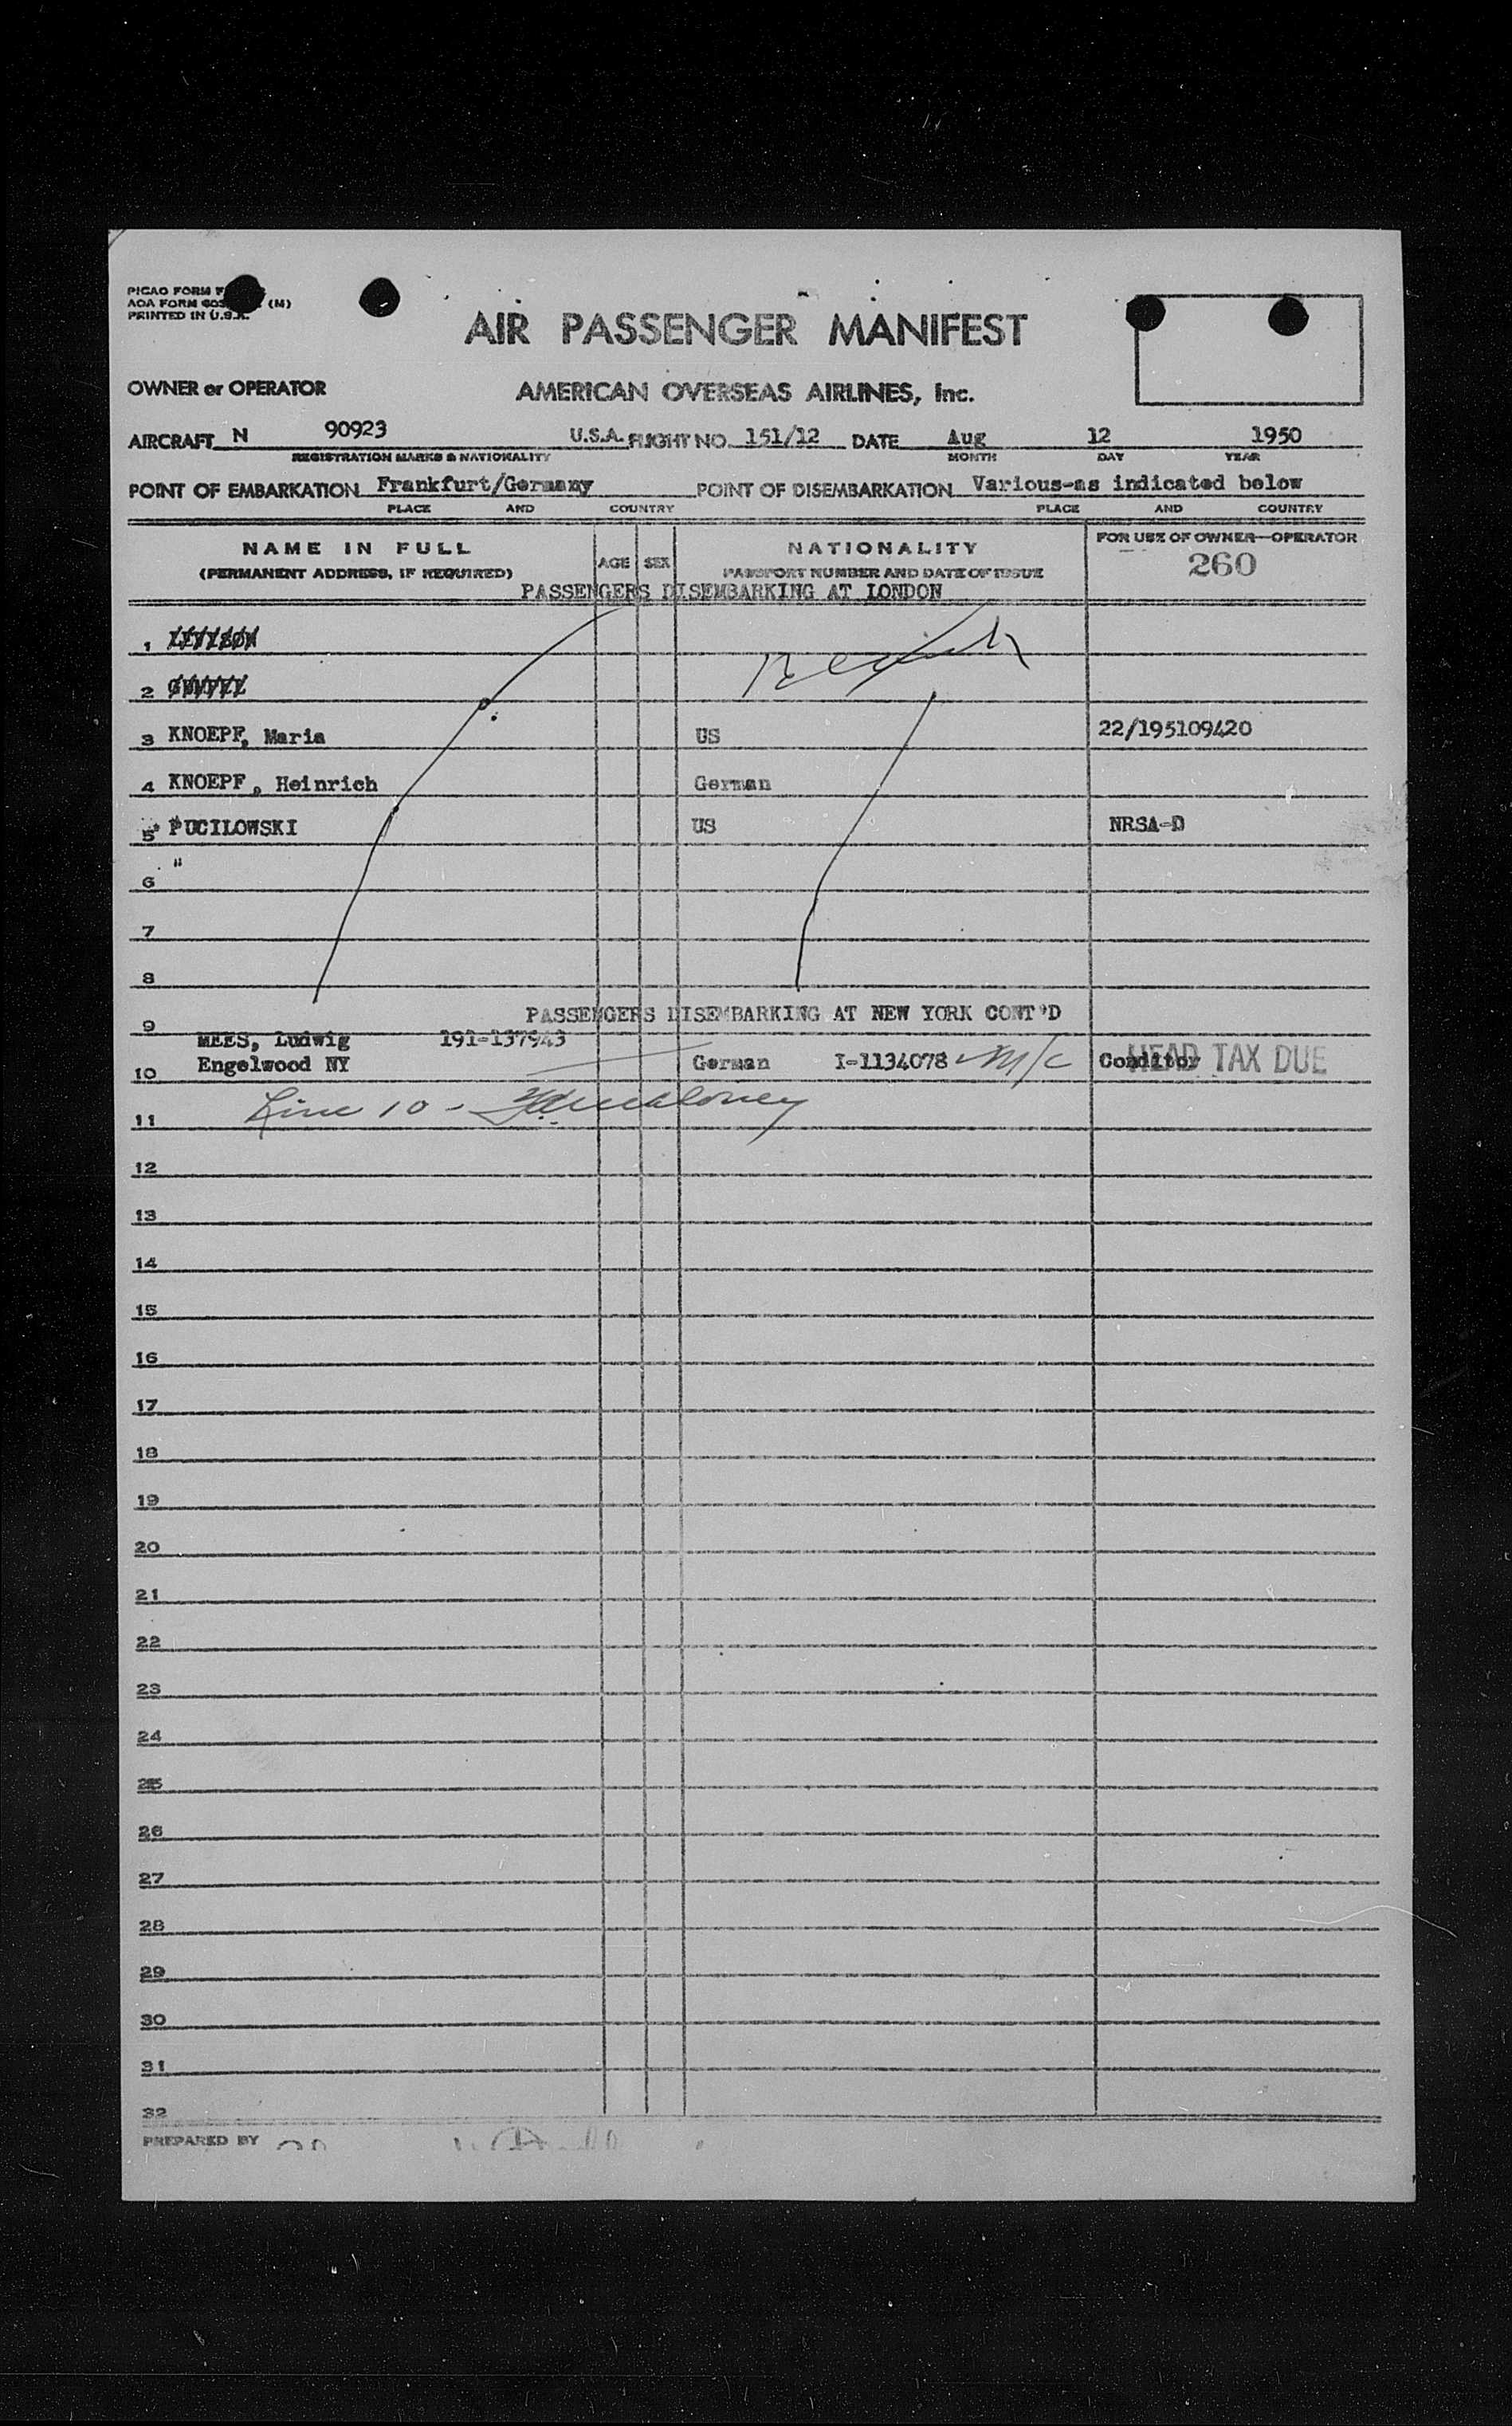 PICAO FORM
AOA FORM (M)
PRINTED IN U.S.A.
AIR PASSENGER MANIFEST
OWNER or OPERATOR AMERICAN OVERSEAS AIRLINES, Inc.
AIRCRAFT N 90923 U.S.A. FLIGHT NO. 151/12 DATE Aug 12 1950
REGISTRATION MARKS & NATIONALITY MONTH DAY YEAR
POINT OF EMBARKATION Frankfurt/Germany POINT OF DISEMBARKATION Various-as indicated below
PLACE AND COUNTRY PLACE AND COUNTRY
NAME IN FULL AGE SEX NATIONALITY FOR USE OF OWNER-OPERATOR
(PERMANENT ADDRESS, IF REQUIRED) PASSPORT NUMBER AND DATE OF ISSUE 260
PASSENGERS DISEMBARKING AT LONDON
1
2
3 KNOEPF, Maria US 22/195109420
4 KNOEPF, Heinrich German
5 PUCILOWSKI US NRSA-D
6 "
7
8
PASSENGERS DISEMBARKING AT NEW YORK CONT'D
9
MEES, Ludwig 191-137943
10 Engelwood NY German I-1134078 M/C Conditor HEAD TAX DUE
11 Line 10 -
12
13
14
15
16
17
18
19
20
21
22
23
24
25
26
27
28
29
30
31
32
PREPARED BY